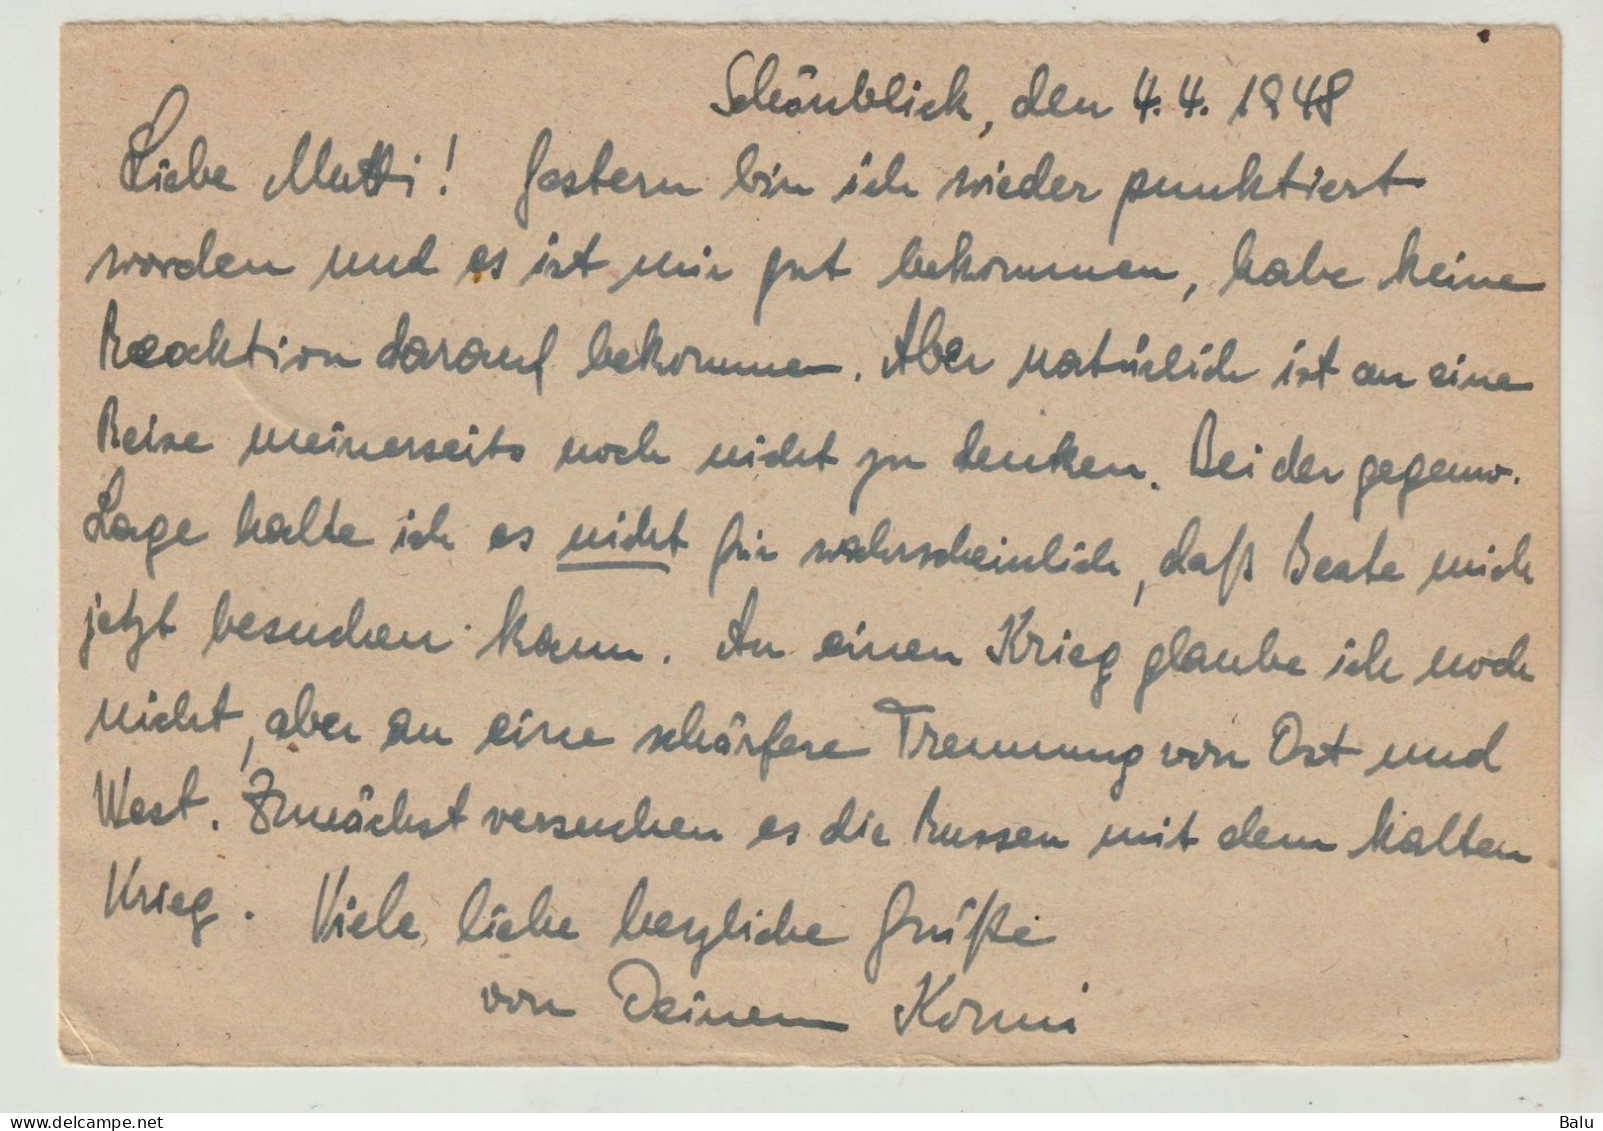 Schönblick, den 4.4.1948
Liebe Mutti! Gestern bin ich wieder punktiert
worden und es ist mir gut bekommen, habe keine
Reaktion darauf bekommen. Aber natürlich ist an eine
Reise meinerseits noch nicht zu denken. Bei der gegenw.
Lage halte ich es nicht für wahrscheinlich, daß Beate mich
jetzt besuchen kann. An einen Krieg glaube ich noch
nicht, aber an eine schärfere Trennung von Ost und
West. Zunächst versuchen es die Russen mit dem kalten
Krieg. Viele liebe herzliche Grüße
von Deinem
delcampe.net
Balu